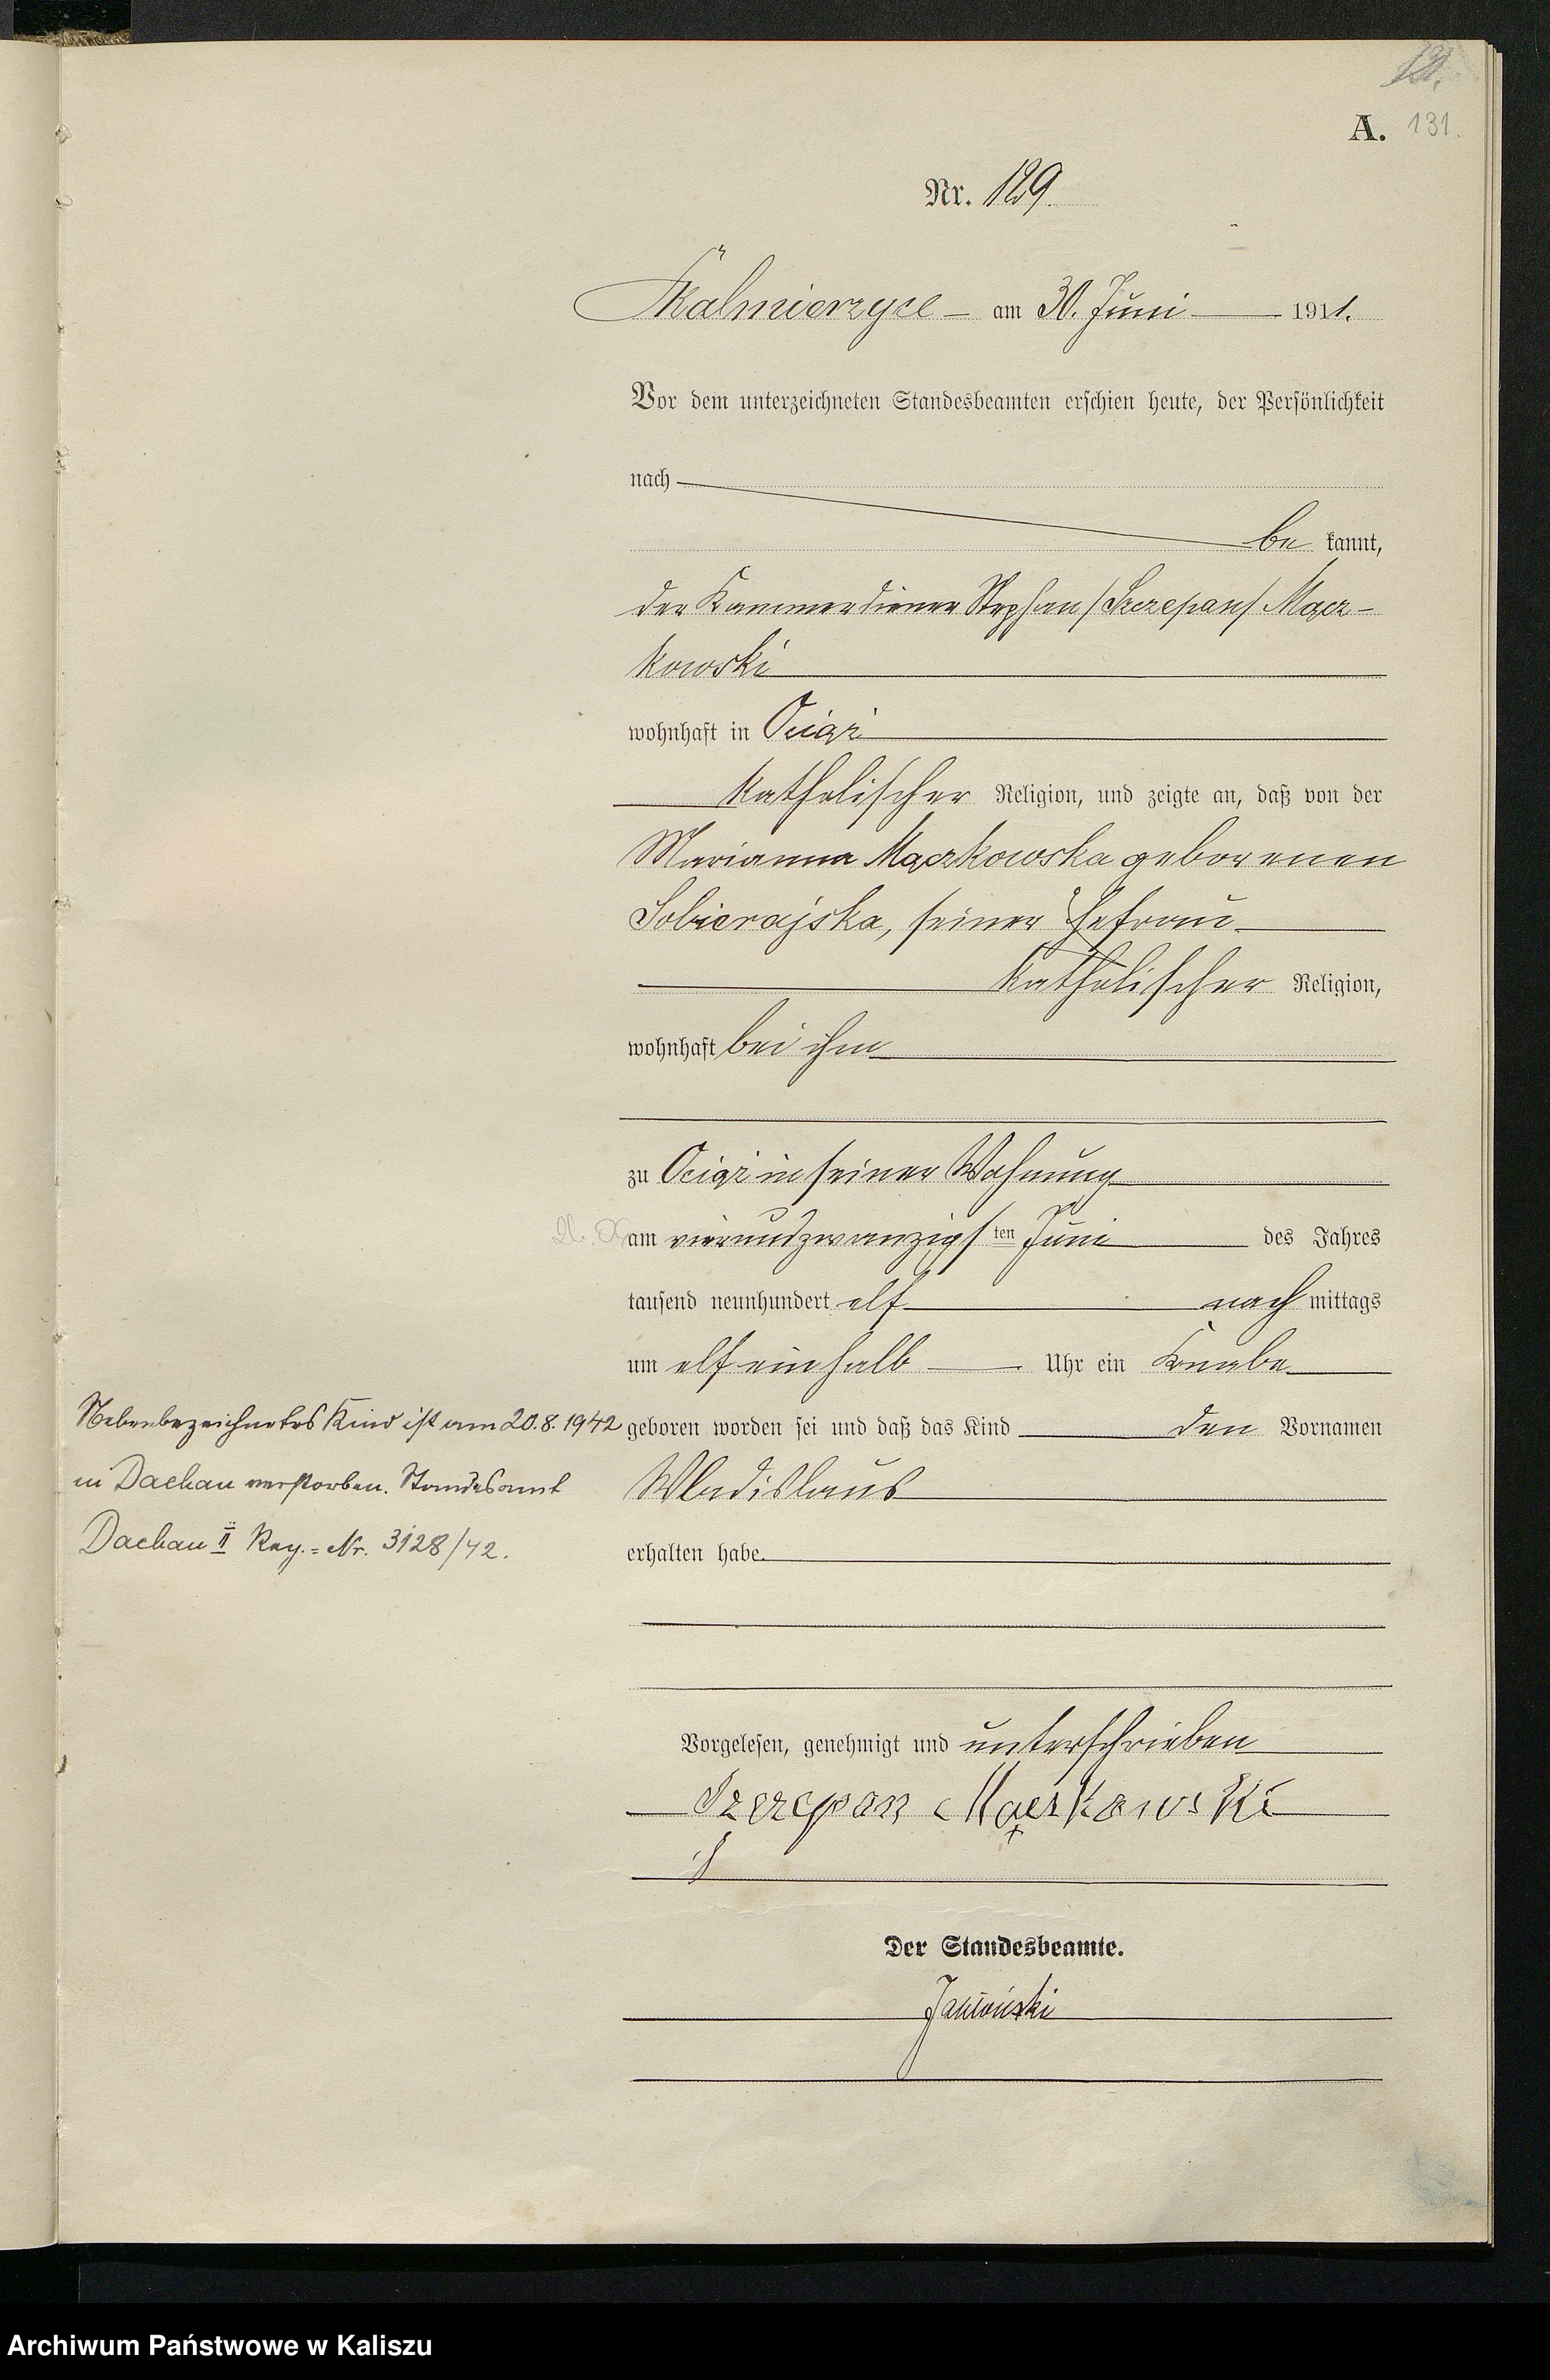 131.
A. 131.
Nr. 129.
Skalmierzyce am 30. Juni 1911.
Vor dem unterzeichneten Standesbeamten erschien heute, der Persönlichkeit
nach
be kannt,
der Kammerdiener Stephan /Szczepan/ Mącz-
kowski
wohnhaft in Ociąż
katholischer Religion, und zeigte an, daß von der
Marianna Mączkowska geborenen
Sobierajska, seiner Ehefrau
katholischer Religion,
wohnhaft bei ihm
zu Ociąż in seiner Wohnung
am vierundzwanzigsten Juni des Jahres
tausend neunhundert elf nach mittags
um elf einhalb Uhr ein Knabe
geboren worden sei und daß das Kind den Vornamen
Wladislaus
erhalten habe.
Nebenbezeichnetes Kind ist am 20.8.1942
in Dachau verstorben. Standesamt
Dachau II Reg.=Nr. 3128/42.
Vorgelesen, genehmigt und unterschrieben
Szczepan Mączkowski
Der Standesbeamte.
Archiwum Państwowe w Kaliszu